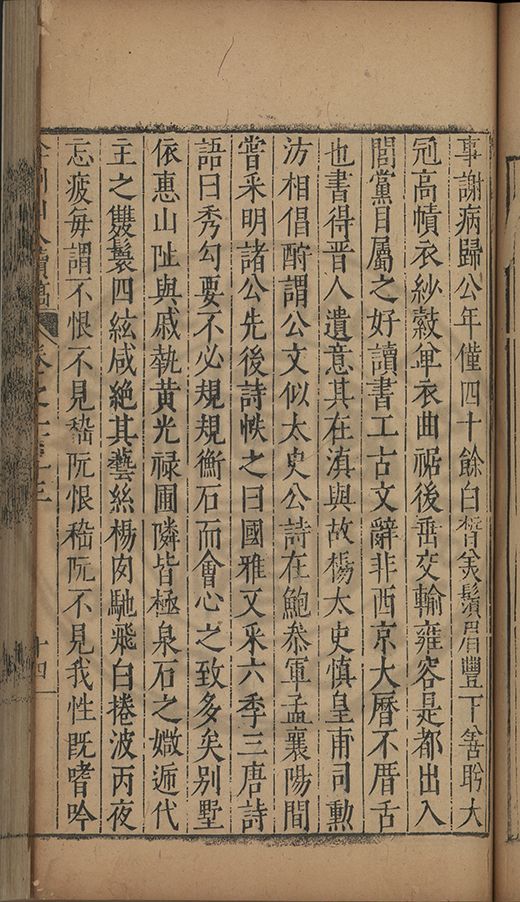 事謝病歸公年僅四十餘白晳美鬚眉豐下善盻大
冠高幘衣紗縠單衣曲裾後垂交輸雍容是都出入
閭黨目屬之好讀書工古文辭非西京大曆不厝舌
也書得晉人遺意其在滇與故楊太史慎皇甫司勳
汸相倡酧謂公文似太史公詩在鮑叅軍孟襄陽間
嘗采明諸公先後詩帙之曰國雅又采六季三唐詩
語曰秀勾要不必規規衡石而會心之致多矣别墅
依惠山阯與戚執黄光禄圃隣皆極泉石之媺邇代
主之雙鬟四絃咸絶其藝絲楊囪馳飛白捲波丙夜
忘疲每謂不恨不見嵇阮恨嵇阮不見我性既嗜吟
十四